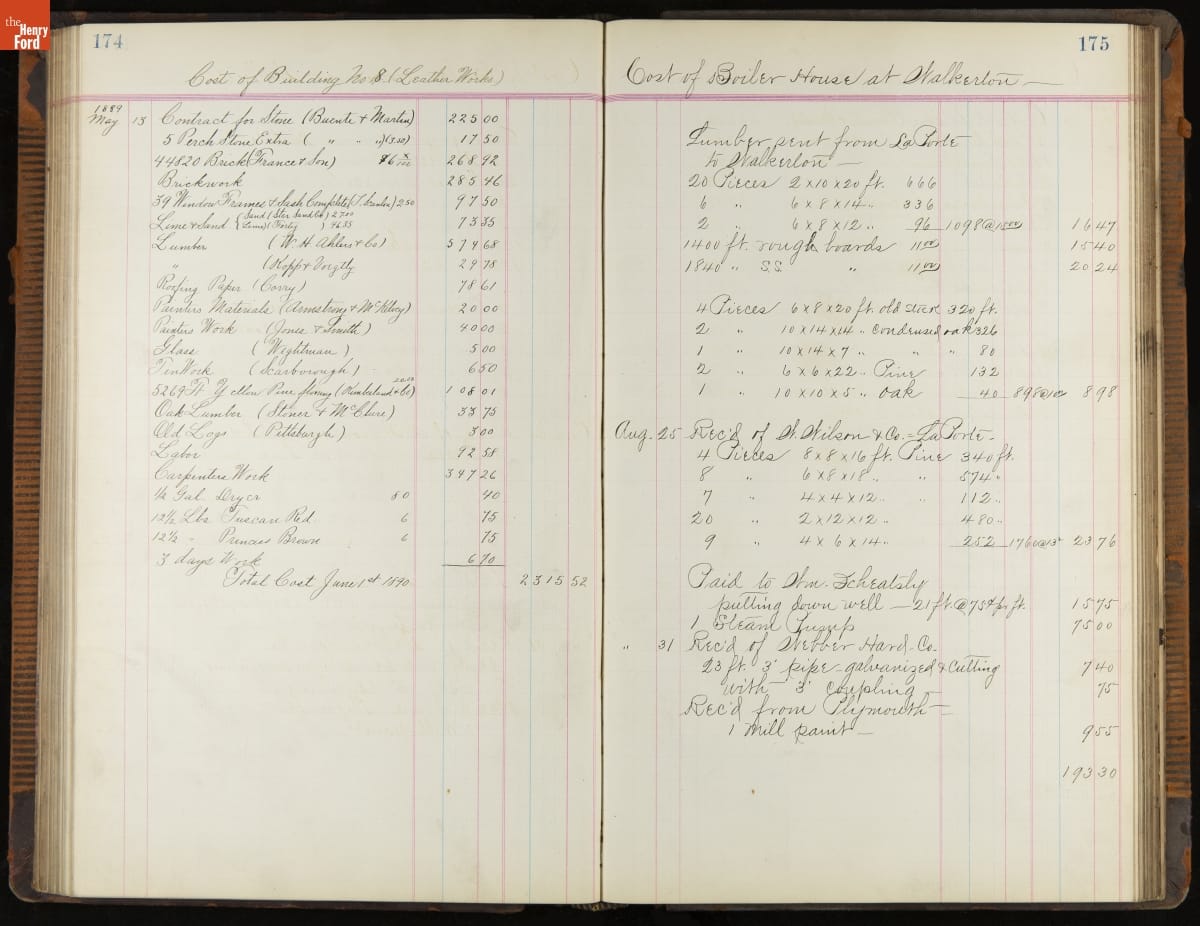 the
Henry
Ford
174
Cost of Building No 8. (Leather Works)
1889
May 13 Contract for Stone (Buente & Martin) 225 00
5 Perch Stone Extra ( " " ")(3.50) 17 50
44820 Brick (France & Son) 268 92
Brickwork 285 46
39 Window Frames & Sash Complete 250 97 50
Lime & Sand 73 35
Lumber (W. H. Ahlers & Co) 579 68
" (Kopp & Voegtly 29 78
Roofing Paper (Corry) 78 61
Painters Materials (Armstrong & McKelvy) 20 00
Painters Work (Jones & Smith) 40 00
Glass (Wightman) 5 00
Tin Work (Scarborough) 6 50
5269 Ft. Yellow Pine flooring (Kimberland & Co) 108 01
Oak Lumber (Stoner & McClure) 33 75
Old Logs (Pittsburgh) 3 00
Labor 92 58
Carpenters Work 347 26
1/2 Gal. Dryer 80 40
12 1/2 Lbs Tuscan Red 6 75
12 1/2 " Princess Brown 6 75
3 days Work 6 70
Total Cost June 1st 1890 2315 52
175
Cost of Boiler House at Walkerton —
Lumber sent from LaPorte
to Walkerton —
20 Pieces 2 x 10 x 20 ft. 666
6 " 6 x 8 x 14 " 336
2 " 6 x 8 x 12 " 96 1098 @ 15 00 16 47
1400 ft. rough boards 11 00 15 40
1840 " S.S. " 11 00 20 24
4 Pieces 6 x 8 x 20 ft. old stock 320 ft.
2 " 10 x 14 x 14 " condensed oak 326
1 " 10 x 14 x 7 " " " 80
2 " 6 x 6 x 22 " Pine 132
1 " 10 x 10 x 5 " oak 40 898 @ 10 8 98
Aug. 25 Rec'd of W. Wilson & Co. = LaPorte -
4 Pieces 8 x 8 x 16 ft. Pine 340 ft.
8 " 6 x 8 x 18 " " 574 "
7 " 4 x 4 x 12 " " 112 "
20 " 2 x 12 x 12 " 480 "
9 " 4 x 6 x 14 " 252 1760 @ 13 23 76
Paid to Wm. Scheatsly
putting down well — 21 ft. @ 75¢ pr ft. 15 75
1 Steam Pump 75 00
" 31 Rec'd of Webber Hard. Co.
23 ft. 3" pipe - galvanized & Cutting 7 40
with 3" coupling — 75
Rec'd from Plymouth —
1 Mill paint — 9 55
193 30